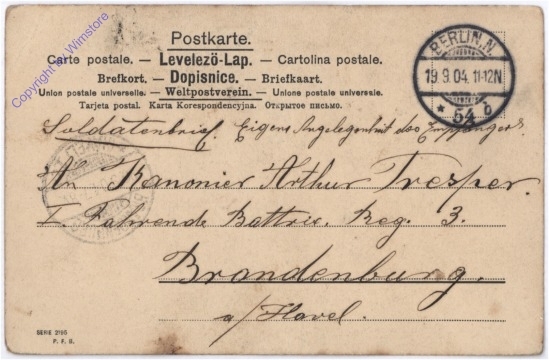 Copyright by Wimstore
Postkarte.
Carte postale. — Levelező-Lap. — Cartolina postale.
Brefkort. — Dopisnice. — Briefkaart.
Union postale universelle. — Weltpostverein. — Unione postale universale.
Tarjeta postal. Karta Korespondencyjna. Открытое письмо.
BERLIN.N.
19.9.04. 11-12N
* 54 b
Soldatenbrief. Eigene Angelegenheit des Empfängers.
An Kanonier Arthur Tresper.
I. Fahrende Battrie. Reg. 3.
Brandenburg.
a/Havel.
SERIE 2195